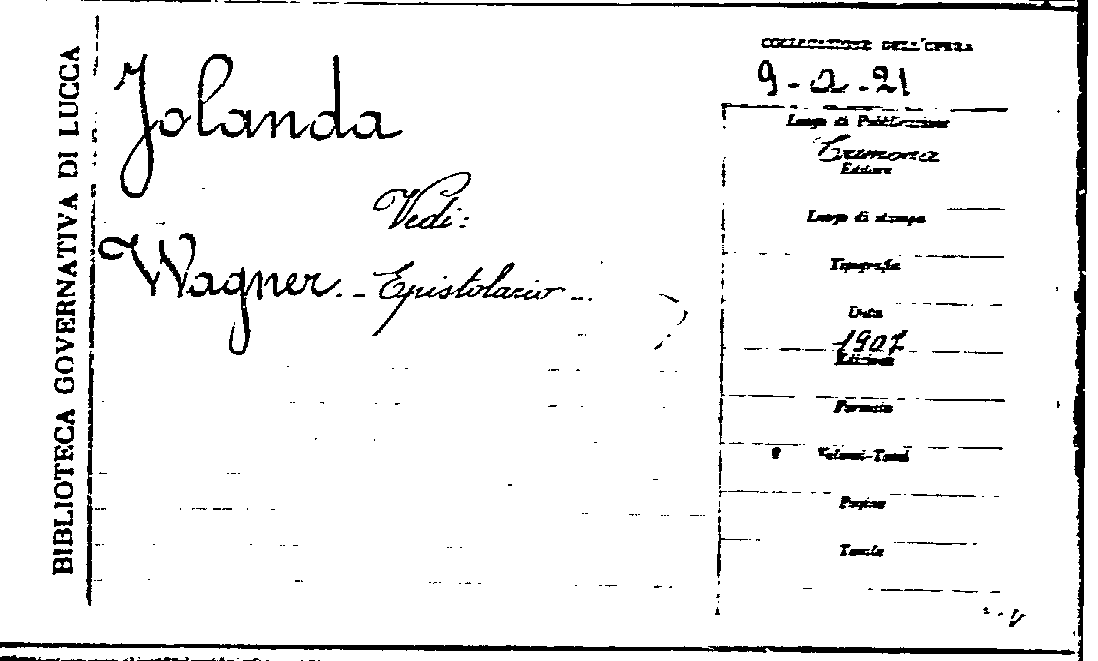 BIBLIOTECA GOVERNATIVA DI LUCCA
Jolanda
Vedi:
Wagner. - Epistolario -
COLLOCAZIONE DELL'OPERA
9-a-21
Luogo di Pubblicazione
Cremona
Editore
Luogo di stampa
Tipografia
Data
1907
Edizione
Formato
Volumi-Tomi
Pagine
Tavole